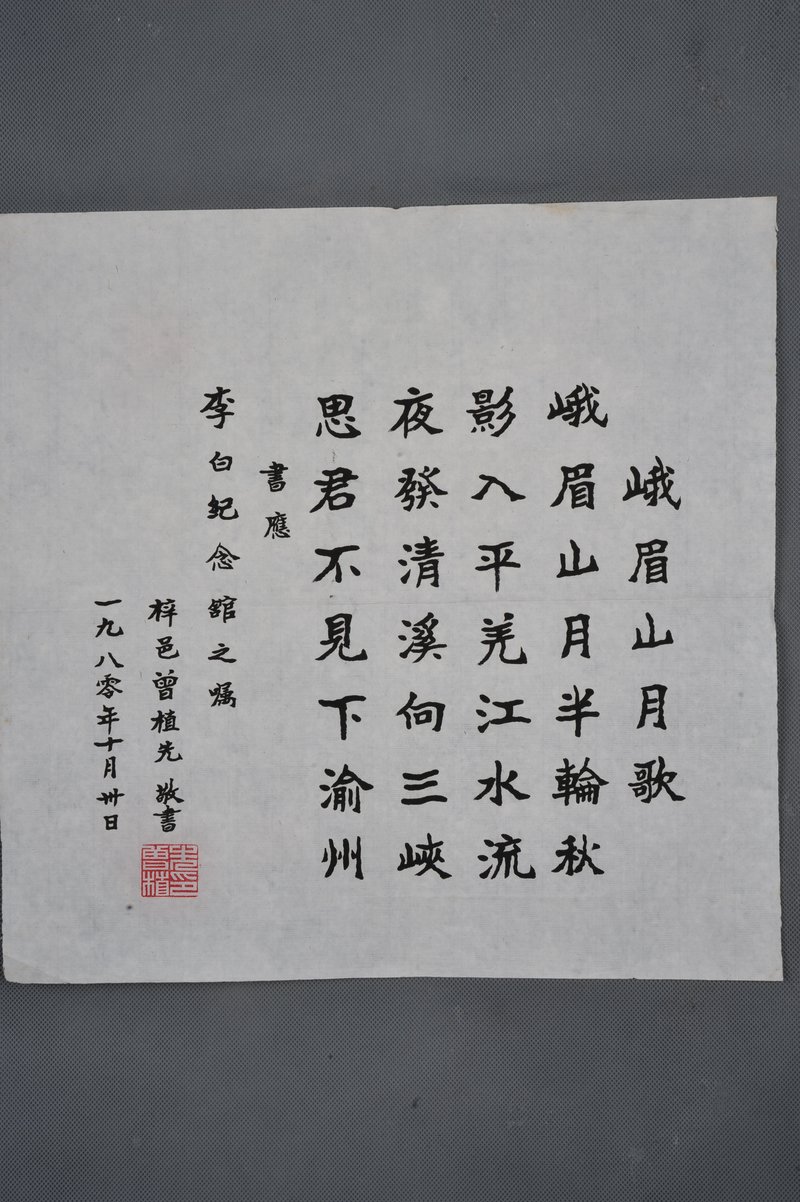 峨眉山月歌
峨眉山月半輪秋
影入平羌江水流
夜發清溪向三峽
思君不見下渝州
書應
李白纪念舘之嘱
梓邑曾植先敬書
一九八零年十月卅日
曾植先印